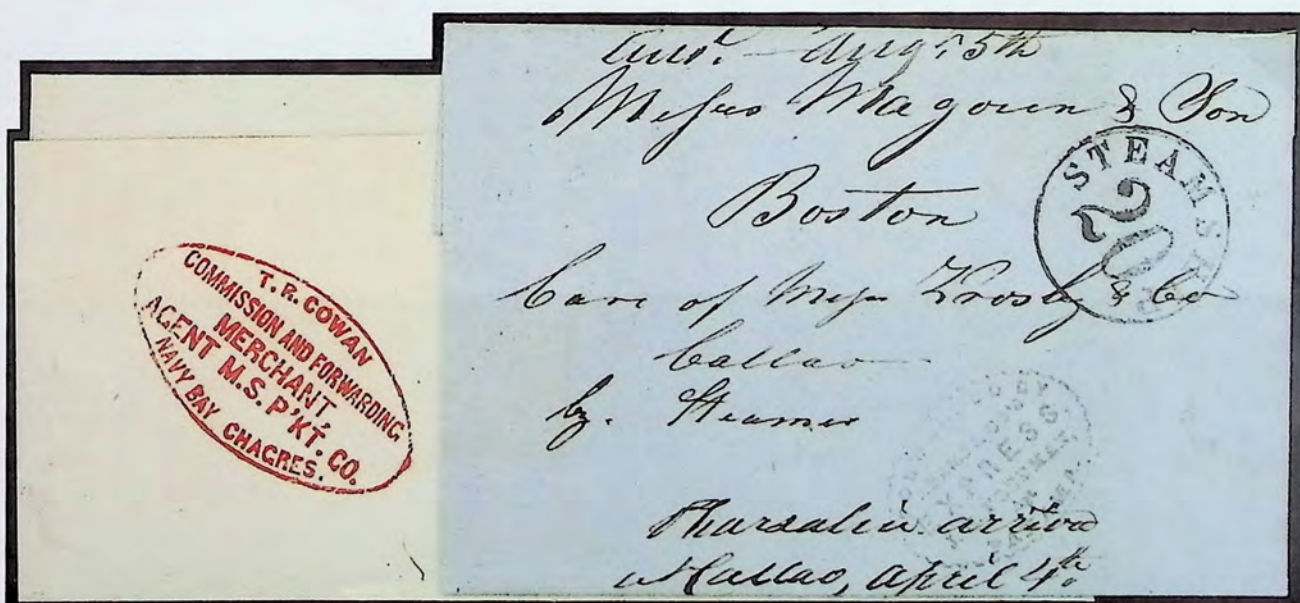 T. R. COWAN
COMMISSION AND FORWARDING
MERCHANT,
AGENT M.S. P'KT. CO.
NAVY BAY CHAGRES.
Augt. 5th
Messrs Magoun & Son
Boston
STEAMSHIP
20
Care of Messrs & Co
Callao
by. Steamer
EXPRESS
Pharsalia arrived
Callao, April 4th